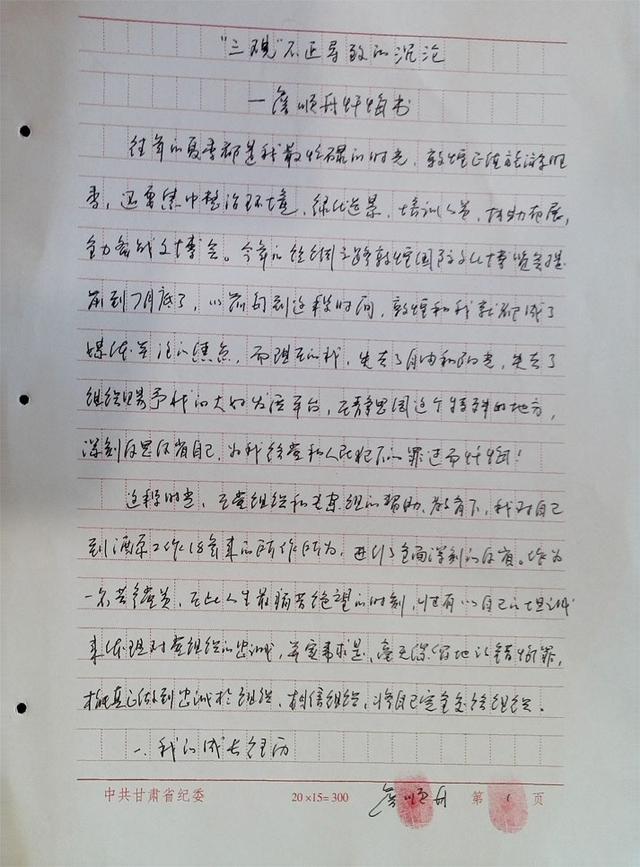 “三观”不正导致的沉沦
—詹顺舟忏悔书
往年的夏季都是我最忙碌的时光，敦煌正值旅游旺
季，还要集中整治环境，绿化造景，培训人员，
全力备战文博会。今年的丝绸之路敦煌国际文化博览会提
前到7月底了，以前每到这段时间，敦煌和我就都成了
媒体关注的焦点，而现在的我，失去了自由和阳光，失去了
组织赐予我的大好发展平台，在静思园这个特殊的地方，
深刻反思反省自己，为我给党和人民犯下的罪过而忏悔！
这段时光，在党组织和专案组的帮助、教育下，我对自己
到酒泉工作18年来的所作所为，进行了全面深刻的反省。作为
一名共产党员，在此人生最痛苦绝望的时刻，惟有以自己的坦诚
来体现对党组织的忠诚，并实事求是、毫无保留地认错悔罪，
真正做到忠诚于组织、相信组织，将自己完全交给组织。
一、我的成长经历
中共甘肃省纪委
20×15=300
詹顺舟
第 1 页